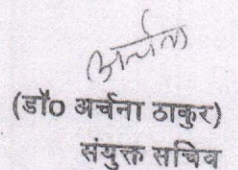 अर्चना
(डॉ0 अर्चना ठाकुर)
संयुक्त सचिव